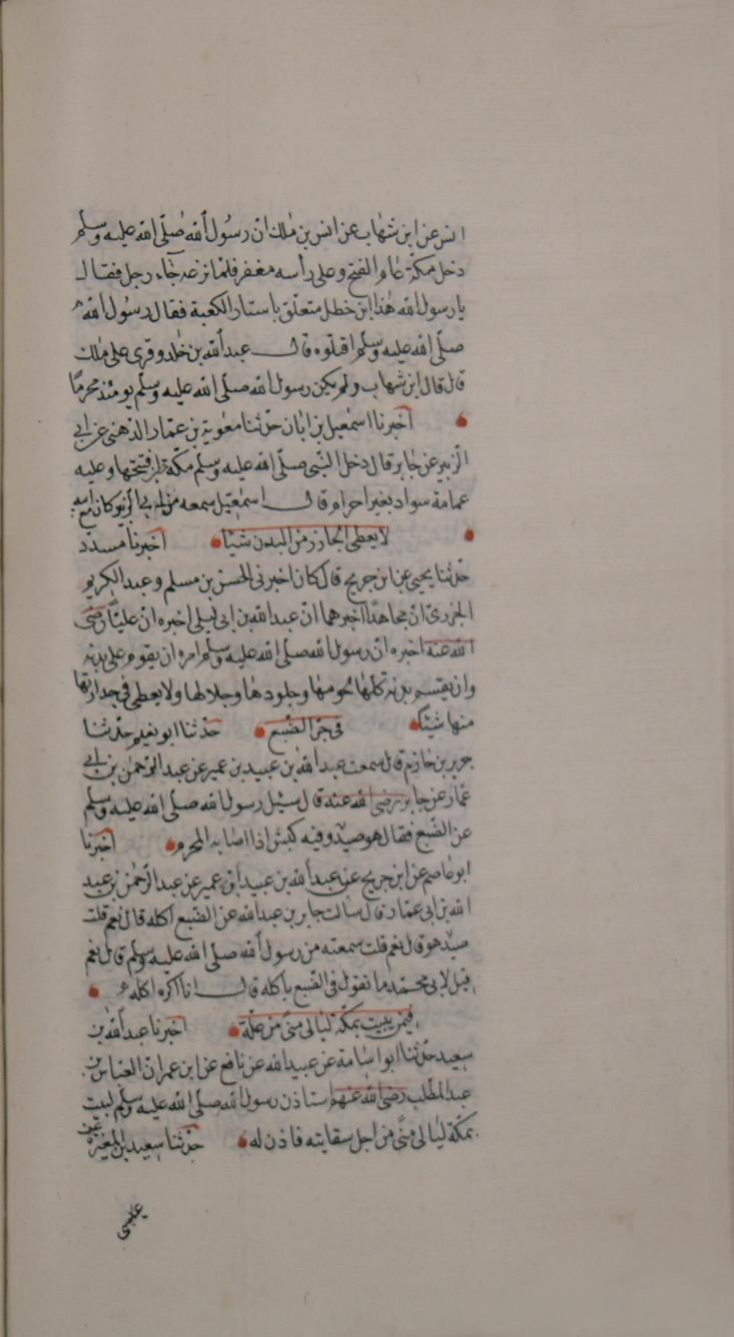 انس عن ابن شهاب عن انس بن ملك ان رسول الله صلى الله عليه وسلم
دخل مكة عام الفتح وعلى رأسه مغفر فلما نزعه جاء رجل فقال
يا رسول الله هذا ابن خطل متعلق باستار الكعبة فقال رسول الله
صلى الله عليه وسلم اقتلوه قال عبد الله بن خلد وقرئ على ملك
قال قال ابن شهاب ولم يكن رسول الله صلى الله عليه وسلم يومئذ محرما
اخبرنا اسمعيل بن ابان حدثنا معوية بن عمار الدهني عن ابي
الزبير عن جابر قال دخل النبي صلى الله عليه وسلم مكة حين افتتحها وعليه
عمامة سواد بغير احرام قال اسمعيل سمعه من ابي الزبير كان مع ابيه
لا يعطى الجازر من البدن شيئا اخبرنا مسدد
حدثنا يحيى عن ابن جريج قال كان اخبرني الحسن بن مسلم وعبد الكريم
الجزري ان مجاهدا اخبرهما ان عبد الله بن ابي ليلى اخبره ان عليا رضي
الله عنه اخبره ان رسول الله صلى الله عليه وسلم امره ان يقوم على بدنه
وان يقسم بدنه كلها لحومها وجلودها وجلالها ولا يعطى في جزارتها
منها شيئا في جزا الضبع حدثنا ابو نعيم حدثنا
جرير بن حازم قال سمعت عبد الله بن عبيد بن عمير عن عبد الرحمن بن ابي
عمار عن جابر رضي الله عنه قال سئل رسول الله صلى الله عليه وسلم
عن الضبع فقال هو صيد وفيه كبش اذا اصابه المحرم اخبرنا
ابو عاصم عن ابن جريج عن عبد الله بن عبيد ابن عمير عن عبد الرحمن بن عبد
الله بن ابي عمار قال سالت جابر بن عبد الله عن الضبع اكله قال نعم قلت
صيد هو قال نعم قلت سمعته من رسول الله صلى الله عليه وسلم قال نعم
قيل لابي محمد ما تقول في الضبع ياكله قال انا اكره اكله
فيمن يبيت بمكة ليالي منى من علة اخبرنا عبد الله بن
سعيد حدثنا ابو اسامة عن عبيد الله عن نافع عن ابن عمر ان العباس بن
عبد المطلب رضي الله عنهم استاذن رسول الله صلى الله عليه وسلم ليبيت
بمكة ليالي منى من اجل سقايته فاذن له حدثنا سعيد بن المغيرة عن
عيسى